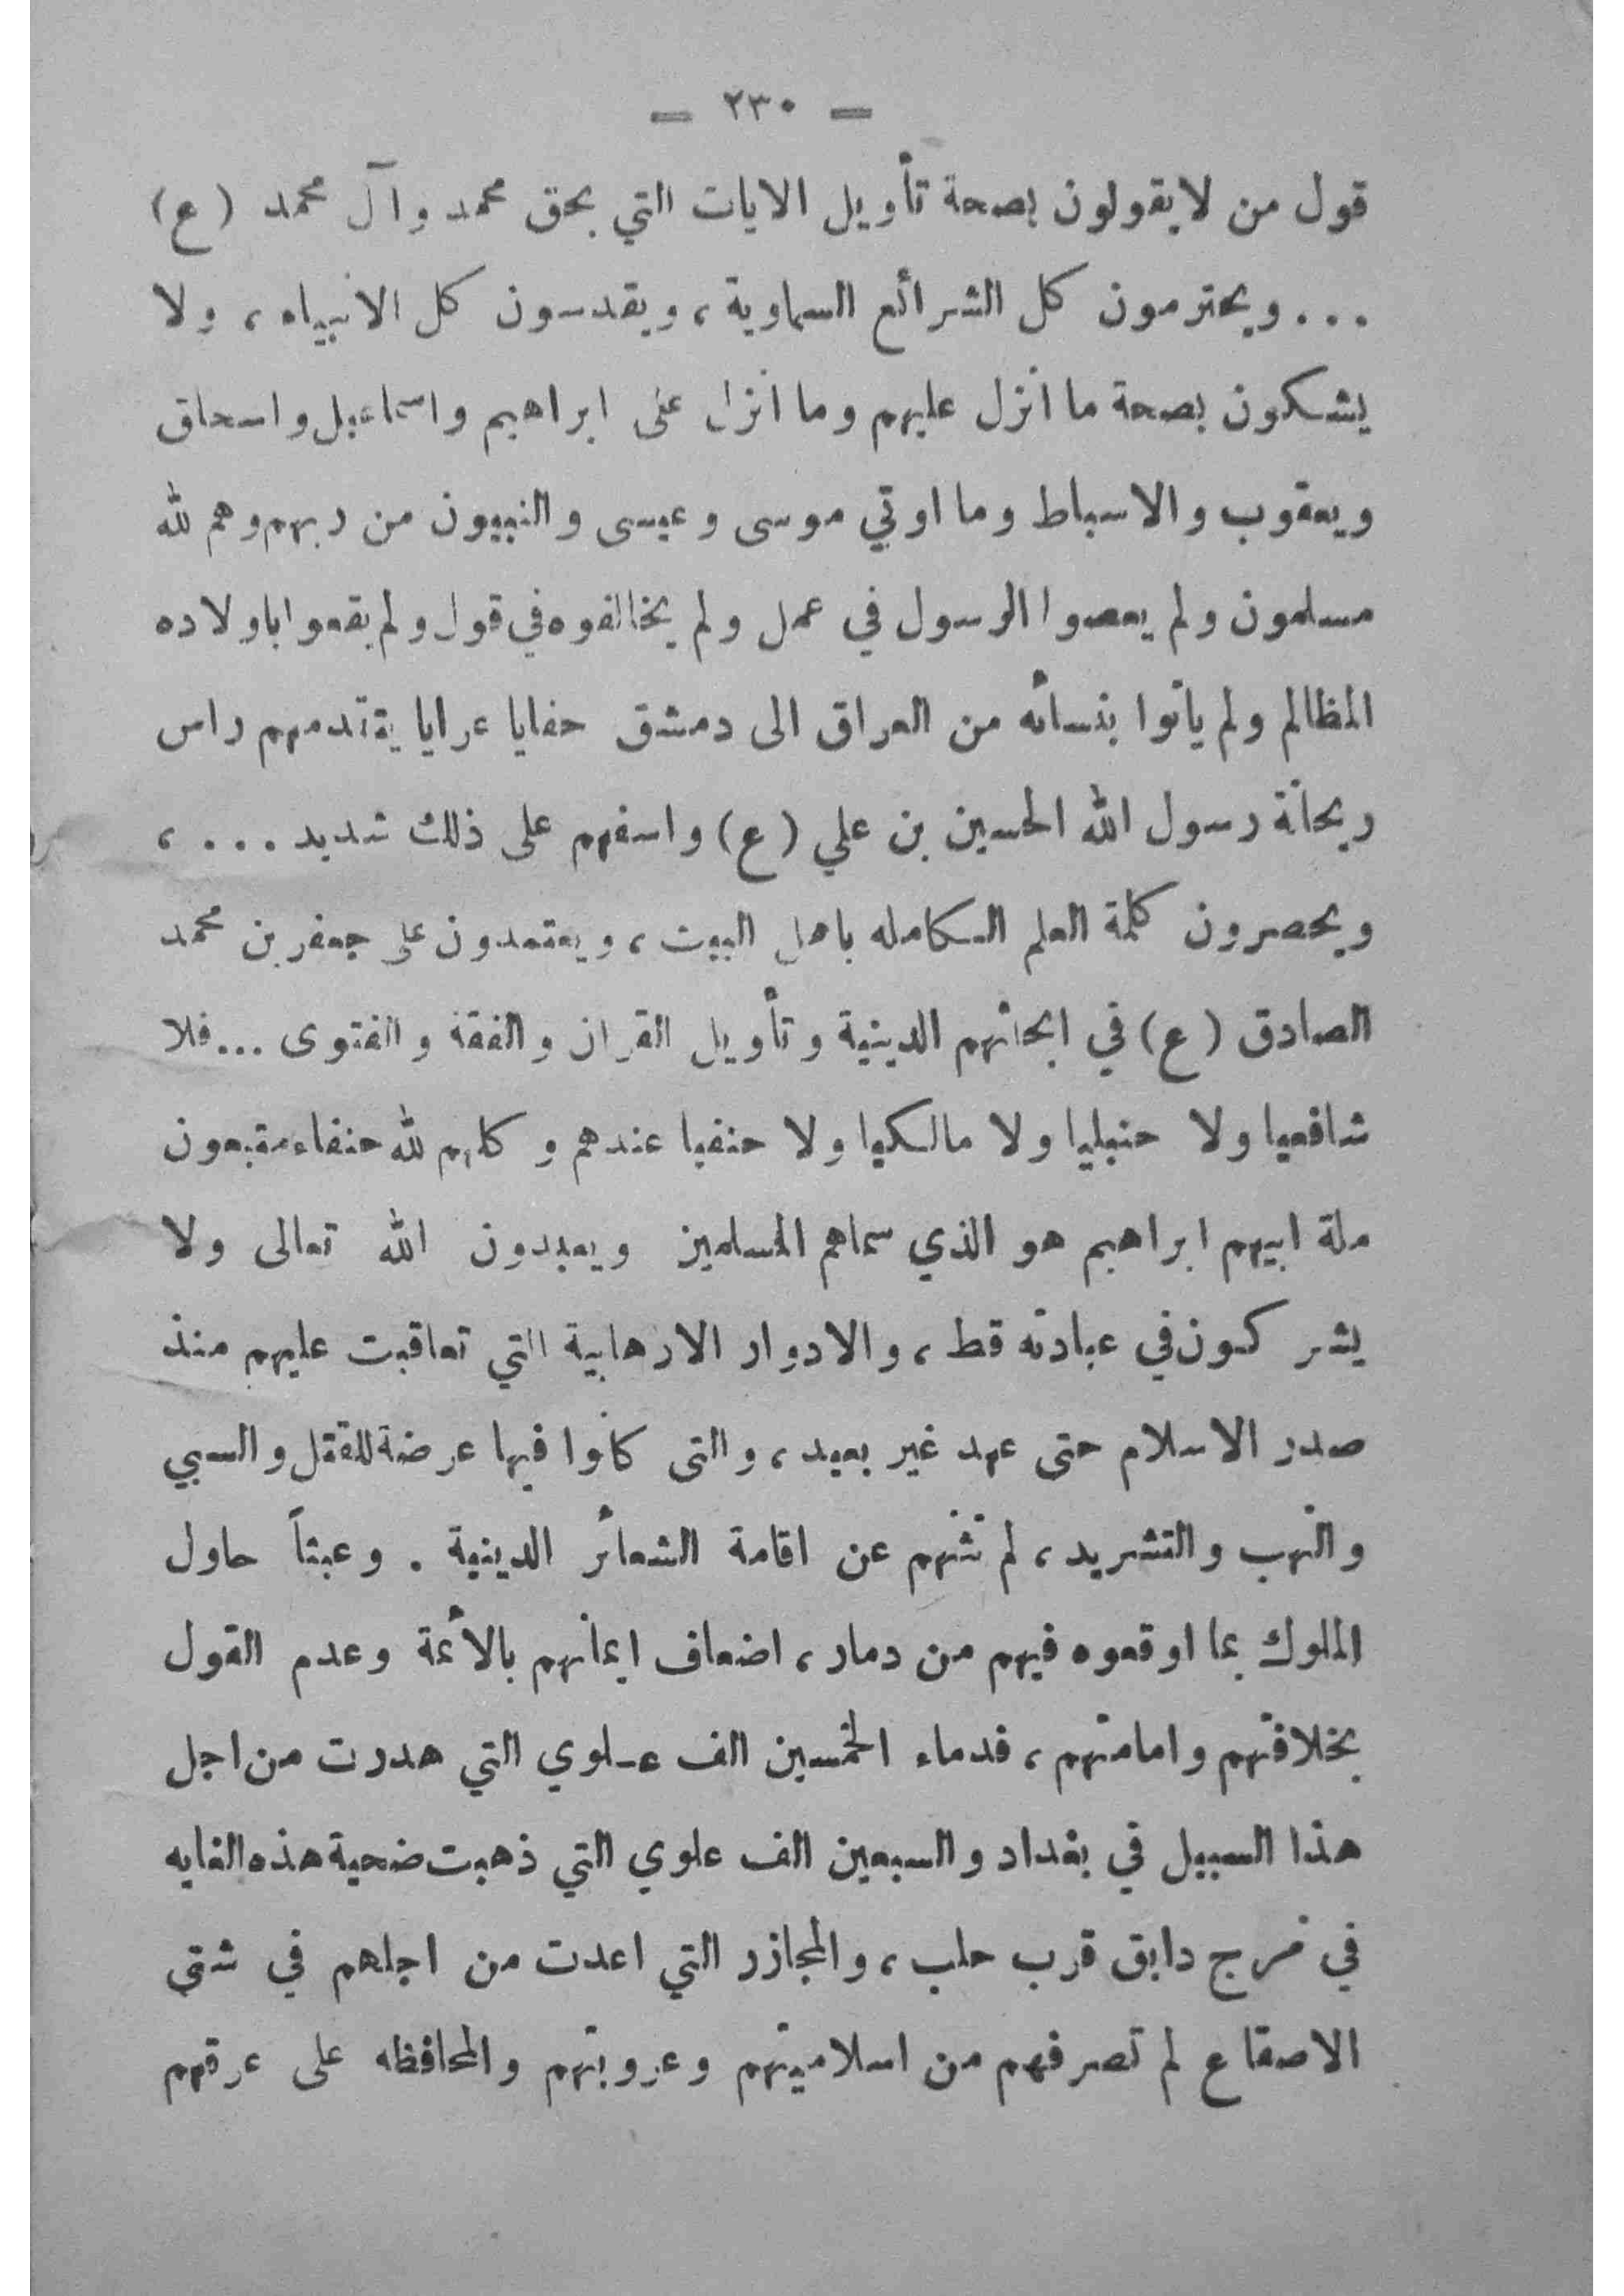 — ٢٣٠ —
قول من لا يقولون بصحة تأويل الايات التي بحق محمد وآل محمد (ع)
... ويحترمون كل الشرائع السماوية ، ويقدسون كل الانبياء ، ولا
يشكون بصحة ما انزل عليهم وما انزل على ابراهيم واسماعيل واسحاق
ويعقوب والاسباط وما اوتي موسى وعيسى والنبيون من ربهم وهم لله
مسلمون ولم يعصوا الرسول في عمل ولم يخالفوه في قول ولم يقعوا باولاده
المظالم ولم يأتوا بنسائه من العراق الى دمشق حفايا عرايا يتقدمهم راس
ريحانة رسول الله الحسين بن علي (ع) واسفهم على ذلك شديد ... ،
ويحصرون كلمة العلم الكامله باهل البيت ، ويعتمدون على جعفر بن محمد
الصادق (ع) في ابحاثهم الدينية وتأويل القران والفقة والفتوى ... فلا
شافعيا ولا حنبليا ولا مالكيا ولا حنفيا عندهم وكلهم لله حنفاء متبعون
ملة ابيهم ابراهيم هو الذي سماهم المسلمين ويعبدون الله تعالى ولا
يشركون في عبادته قط ، والادوار الارهابية التي تعاقبت عليهم منذ
صدر الاسلام حتى عهد غير بعيد ، والتى كانوا فيها عرضة للقتل والسبي
والنهب والتشريد ، لم تثنهم عن اقامة الشعائر الدينية . وعبثاً حاول
الملوك بما اوقعوه فيهم من دمار ، اضعاف ايمانهم بالأئمة وعدم القول
بخلافتهم وامامتهم ، فدماء الخمسين الف عـلوي التي هدرت من اجل
هذا السبيل في بغداد والسبعين الف علوي التي ذهبت ضحية هذه الغايه
في مرج دابق قرب حلب ، والمجازر التي اعدت من اجلهم في شتى
الاصقاع لم تصرفهم من اسلاميتهم وعروبتهم والمحافظه على عرقهم